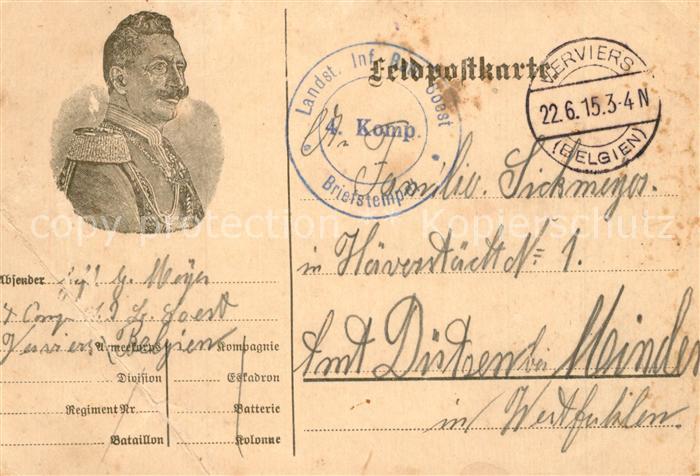 Feldpostkarte
Landst. Inf. Soest
4. Komp.
Briefstempel
VERVIERS
22.6.15.3-4 N
(BELGIEN)
Familie Sickmeyer.
in Häverstädt No 1.
Amt Dützen bei Minden
in Westfahlen.
copy protection - Kopierschutz
Absender G. Meyer
4 Comp. Soest
Verviers Belgien
Armeekorps Kompagnie
Division Eskadron
Regiment Nr. Batterie
Bataillon Kolonne